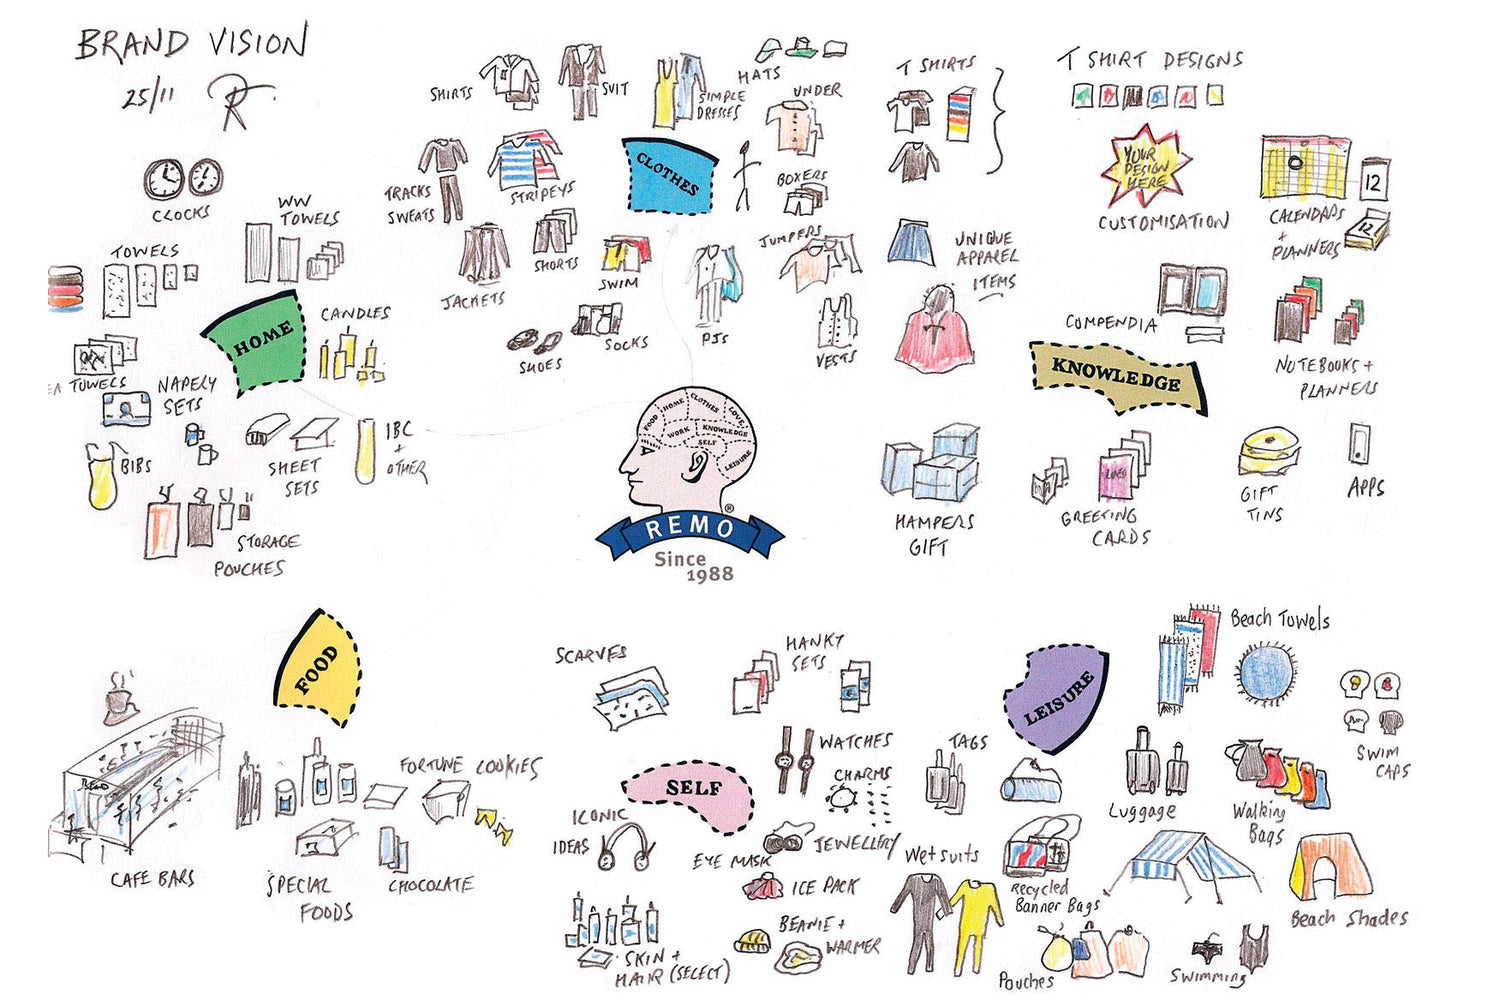 BRAND VISION
25/11
SHIRTS
SUIT
SIMPLE
DRESSES
HATS
UNDER
T SHIRTS
T SHIRT DESIGNS
CLOCKS
WW
TOWELS
TRACKS
SWEATS
STRIPEYS
CLOTHES
BOXERS
YOUR
DESIGN
HERE
CUSTOMISATION
12
12
CALENDARS
+
PLANNERS
TOWELS
JACKETS
SHORTS
SWIM
JUMPERS
UNIQUE
APPAREL
ITEMS
HOME
CANDLES
SHOES
SOCKS
PJS
VESTS
COMPENDIA
KNOWLEDGE
NOTEBOOKS +
PLANNERS
EA TOWELS
NAPERY
SETS
BIBS
SHEET
SETS
IBC
+
OTHER
STORAGE
POUCHES
FOOD
HOME
CLOTHES
LOVE
WORK
KNOWLEDGE
SELF
LEISURE
REMO
®
Since
1988
HAMPERS
GIFT
GREETING
CARDS
GIFT
TINS
APPS
FOOD
CAFE BARS
SPECIAL
FOODS
FORTUNE COOKIES
CHOCOLATE
SCARVES
HANKY
SETS
WATCHES
CHARMS
TAGS
SELF
ICONIC
IDEAS
EYE MASK
JEWELLERY
ICE PACK
BEANIE +
WARMER
SKIN +
HAIR (SELECT)
LEISURE
Beach Towels
SWIM
CAPS
Luggage
Walking
Bags
Wetsuits
Recycled
Banner Bags
Beach Shades
Pouches
Swimming